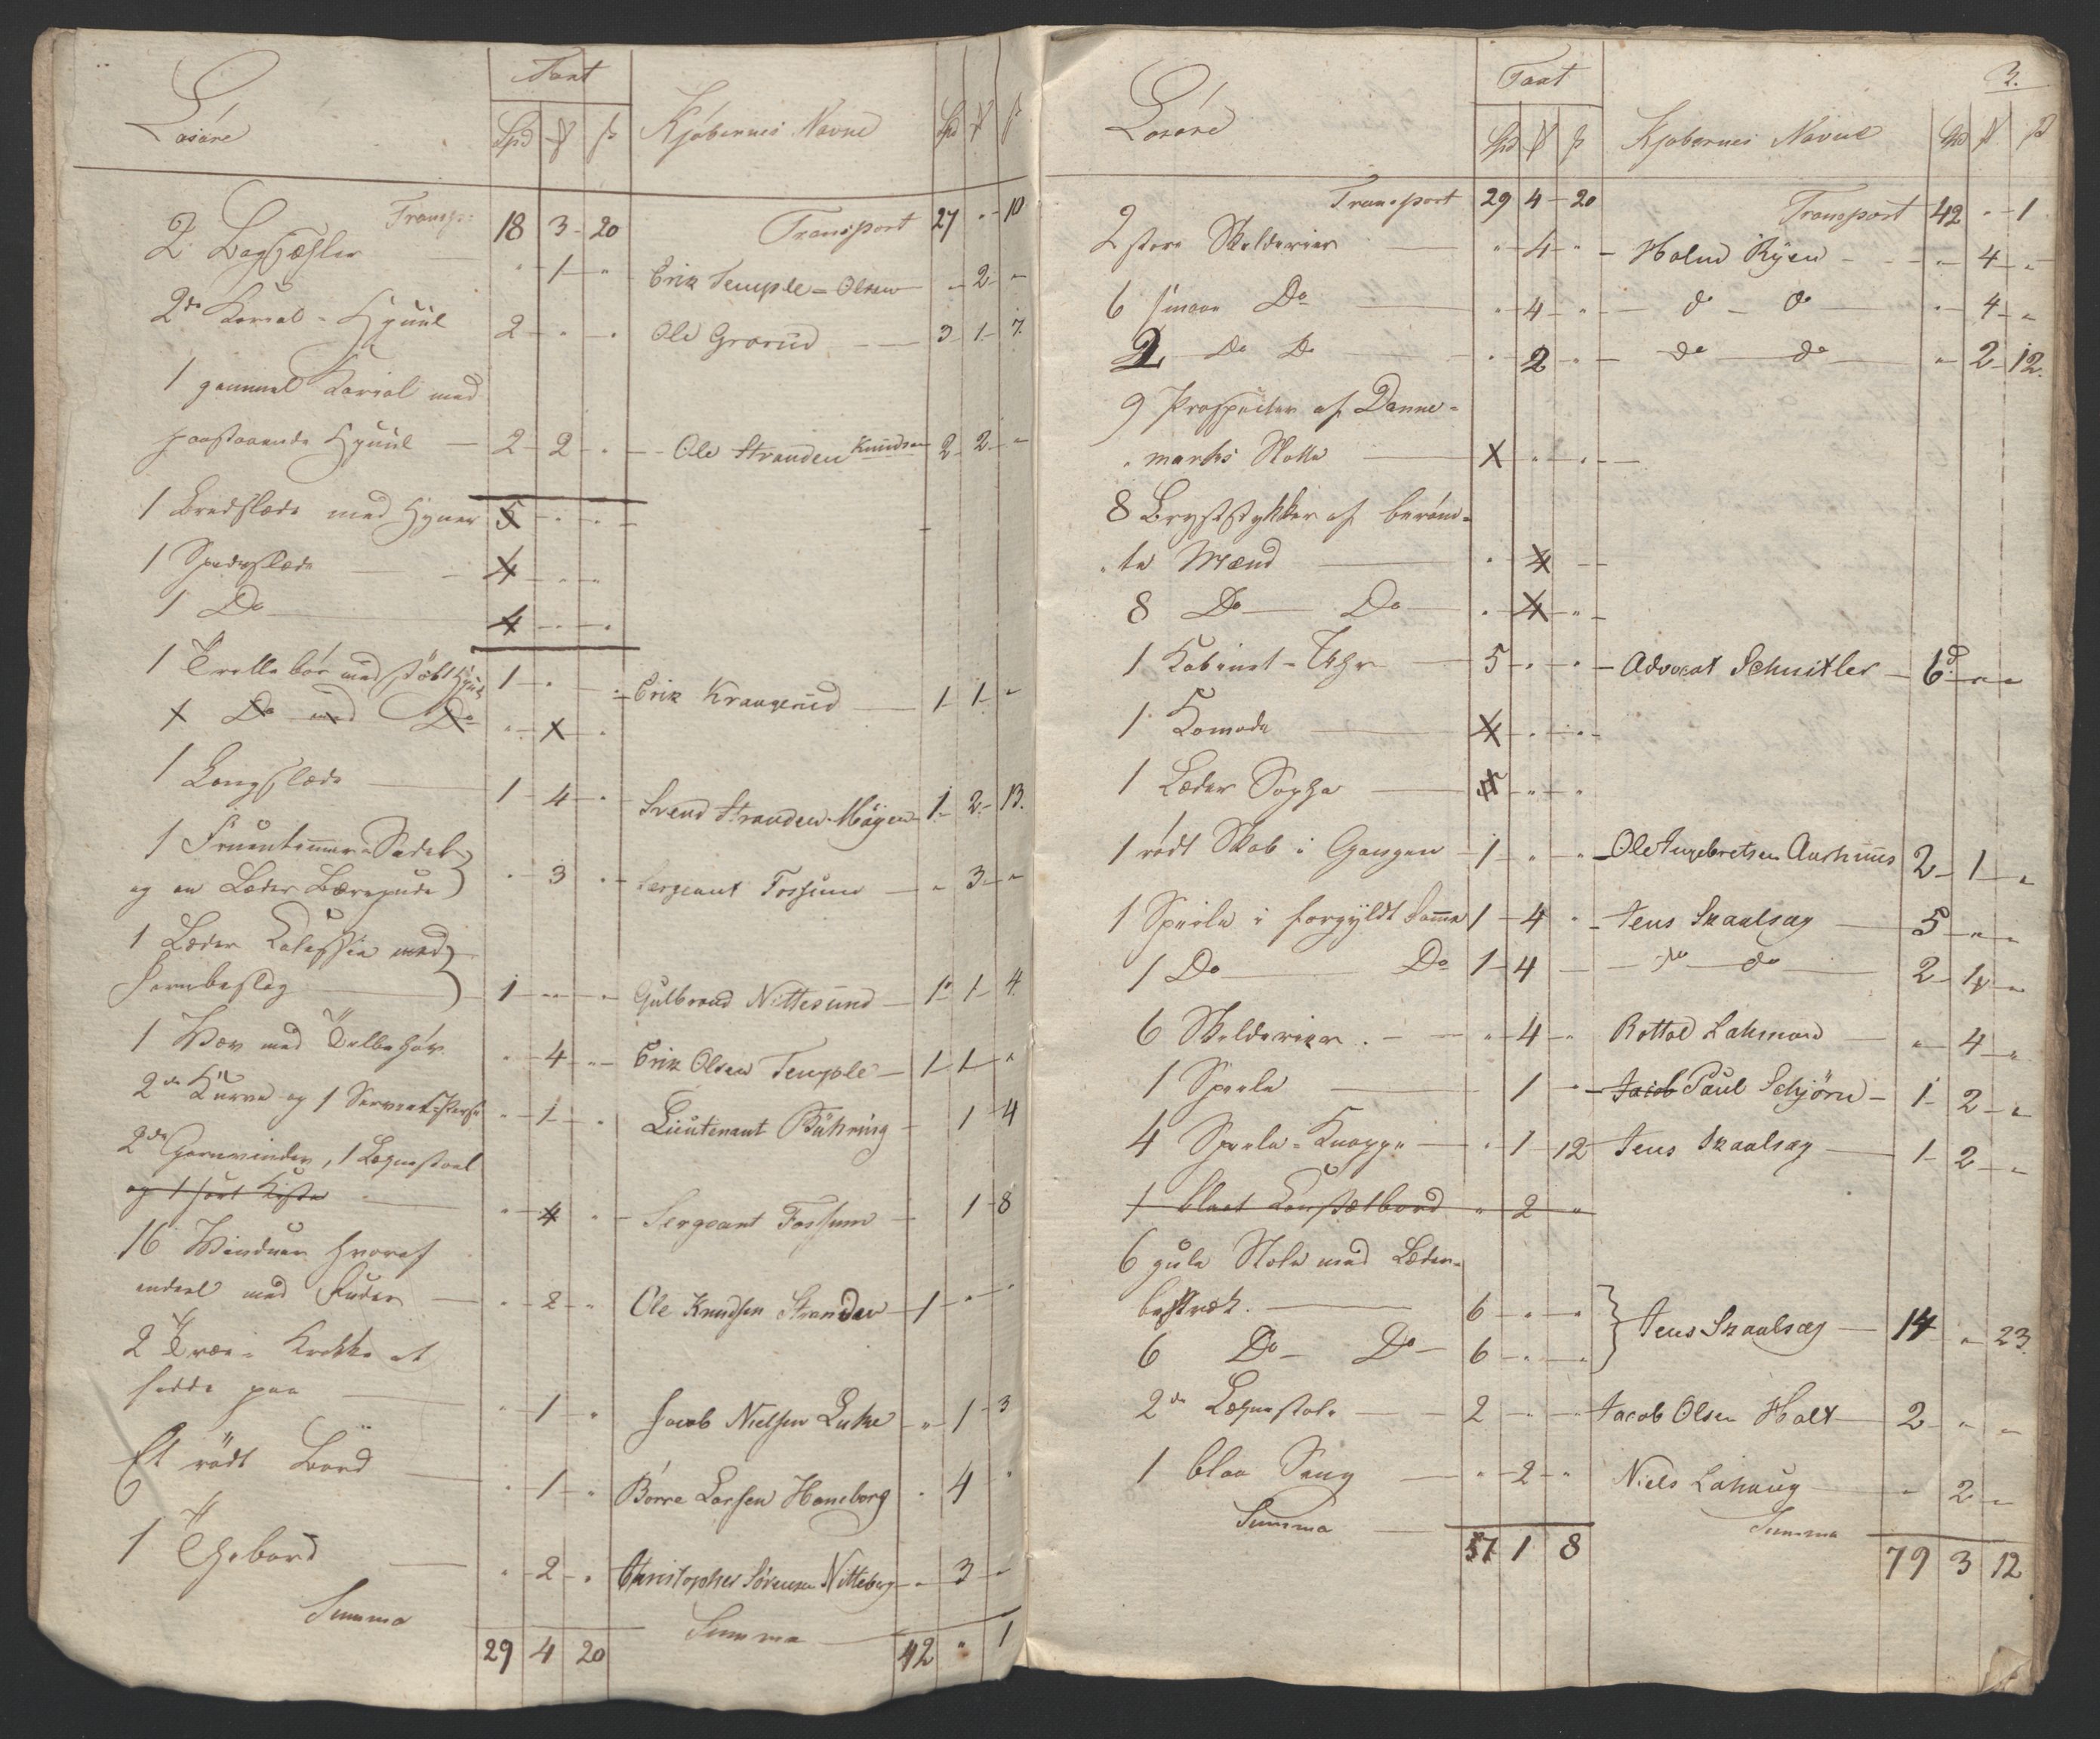 Løsøre Taxt Kjøbernes Navne
Spd ß Spd ß
Transp: 18 3 - 20 Transport 27 " - 10
2 " - 1 - " Erik Temple - Olsen - 2 - "
2de Kariol - Hjuul 2 - " - " Ole Grorud 3 - 1 - 7.
1 gammel Kariol med
paastaaende Hjuul 2 - 2 - " Ole Stranden Knudsen 2 - 2 - "
1 Bredslæde med 5 - " - "
1 Spidsslæde 4 - " - "
1 Do 4 - " - "
1 Trillebør med støbt Hjul 1 - " - Erik Krangerud 1 - 1 - "
1 Do med Do " - 1 - "
1 Langslæde 1 - 4 - " Svend Stranden Mágen 1 - 2 - 13.
1 Fruentimmer Sadel
og en Læder Bærepude " - 3 - " Sergeant Fossum " - 3 - "
1 Læder med
Jernbeslag 1 - " - " Gulbrand Nittesund 1 - 1 - 4.
1 Væv med Tilbehør " - 4 - " Erik Olsen Temple 1 - 1 - "
2de Kurve og 1 " - 1 - " Lieutenant Bühring 1 - 4
2de Garnvinder, 1 Lænestoel
og 1 sort Kiste " - 4 - " Sergeant Fossum 1 - 8
16 Vinduer hvoraf
endeel med Ruder " - 2 - " Ole Knudsen Stranden 1 - " - "
2 Træe- Krakke at
sidde paa " - 1 - " Jacob Nielsen Luke " - 1 - 3
Et rödt Bord " - 1 - " Börre Larsen Haneborg " 4 "
1 Thebord " - 2 - " Christopher Sörensen Nitteberg " - 3 - "
Summa 29 4 20 Summa 42 " 1
3.
Løsøre Taxt Kjøbernes Navne
Spd ß Spd ß
Transport 29 4 - 20 Transport 42 " - 1
2 store Skilderier " - 4 - " Holm Rÿen " - 4 - "
6 smaae Do " - 4 - " do - do " - 4 - "
2 Do Do " - 2 - " do do " - 2 - 12.
9 Prospecter af Danne-
marks Slotte 1 - " - "
8 Bryststykker af berøm-
te Mænd " - 4 -
8 Do Do " - 4 - "
1 Kabinet - Uhr 5 - " - " Advocat Schnitler 6 - " - "
1 Komode 4 - " - "
1 Læder Sopha - " - "
1 rødt Skab i Gangen 1 - " - " Ole Ingebretsen Aurhuus 2 - 1 - "
1 Speile i forgyldt Ramme 1 - 4 - " Jens Skaalsæg 5 - " - "
1 Do Do 1 - 4 - do do 2 - 1 - "
6 Skilderier " - 4 - " Rottol Lahmoen " - 4 - "
1 Speile 1 - " Jacob Paul Schjörn 1 - 2 - "
4 Speile - Knappe " - 1 - 12 Jens Skaalsæg 1 - 2 - "
1 blaat bord " - 2 - "
6 gule Stole med Læder-
betræk. 6 - " - "
6 Do - Do 6 - " - " Jens Skaalsæg 14 " - 23.
2de Lænestole 2 - " - " Jacob Olsen Holt 2 - " - "
1 blaa Seng " - 2 - " Niels Lahaug " - 2 - "
Summa 57 1 8 Summa 79 3 12